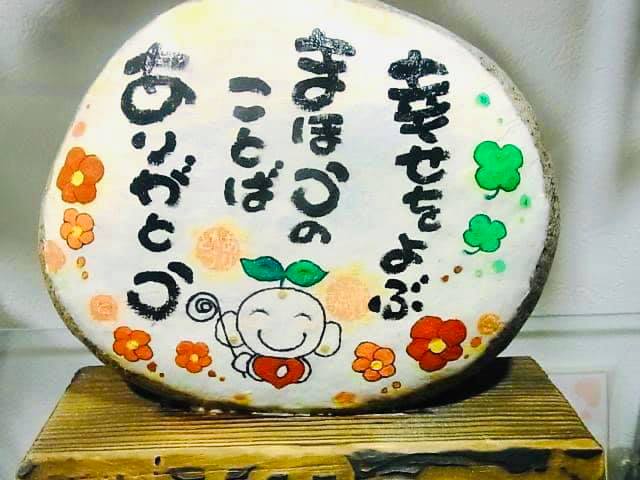 幸せをよぶ
まほうの
ことば
ありがとう